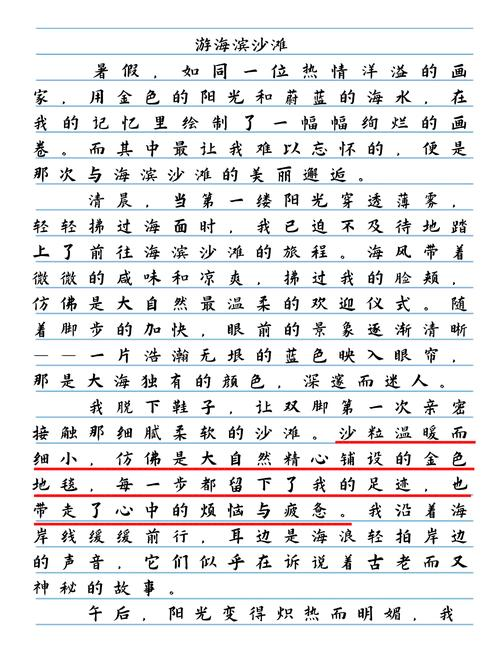 游海滨沙滩
暑假，如同一位热情洋溢的画
家，用金色的阳光和蔚蓝的海水，在
我的记忆里绘制了一幅幅绚烂的画
卷。而其中最让我难以忘怀的，便是
那次与海滨沙滩的美丽邂逅。
清晨，当第一缕阳光穿透薄雾，
轻轻拂过海面时，我已迫不及待地踏
上了前往海滨沙滩的旅程。海风带着
微微的咸味和凉爽，拂过我的脸颊，
仿佛是大自然最温柔的欢迎仪式。随
着脚步的加快，眼前的景象逐渐清晰
——一片浩瀚无垠的蓝色映入眼帘，
那是大海独有的颜色，深邃而迷人。
我脱下鞋子，让双脚第一次亲密
接触那细腻柔软的沙滩。沙粒温暖而
细小，仿佛是大自然精心铺设的金色
地毯，每一步都留下了我的足迹，也
带走了心中的烦恼与疲惫。我沿着海
岸线缓缓前行，耳边是海浪轻拍岸边
的声音，它们似乎在诉说着古老而又
神秘的故事。
午后，阳光变得炽热而明媚，我